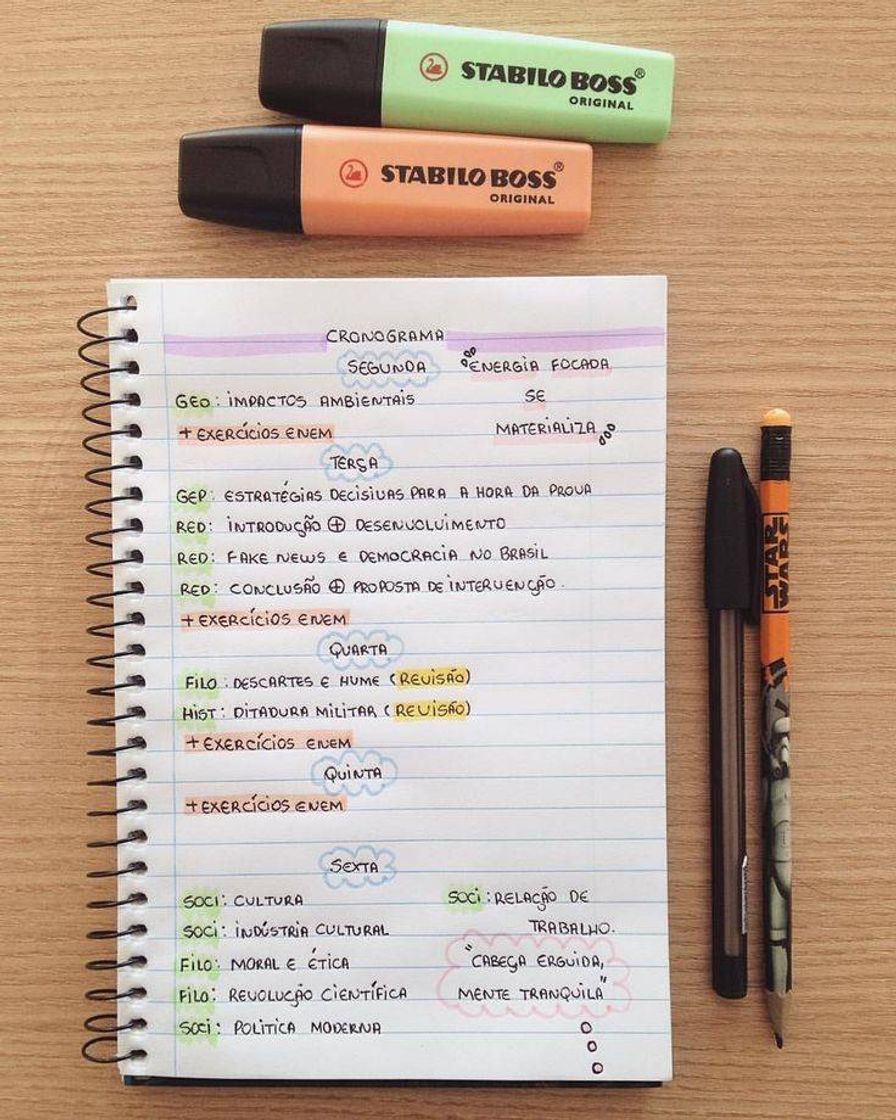 STABILO BOSS®
ORIGINAL
STABILO BOSS®
ORIGINAL
CRONOGRAMA
SEGUNDA
"ENERGIA FOCADA
GEO: IMPACTOS AMBIENTAIS
SE
+ EXERCÍCIOS ENEM
MATERIALIZA
TERÇA
GEP: ESTRATÉGIAS DECISIVAS PARA A HORA DA PROVA
RED: INTRODUÇÃO ⊕ DESENVOLVIMENTO
RED: FAKE NEWS E DEMOCRACIA NO BRASIL
RED: CONCLUSÃO ⊕ PROPOSTA DE INTERVENÇÃO.
+ EXERCÍCIOS ENEM
QUARTA
FILO: DESCARTES E HUME (REVISÃO)
HIST: DITADURA MILITAR (REVISÃO)
+ EXERCÍCIOS ENEM
QUINTA
+ EXERCÍCIOS ENEM
SEXTA
SOCI: CULTURA
SOCI: INDÚSTRIA CULTURAL
FILO: MORAL E ÉTICA
FILO: REVOLUÇÃO CIENTÍFICA
SOCI: POLITICA MODERNA
SOCI: RELAÇÃO DE
TRABALHO.
"CABEÇA ERGUIDA,
MENTE TRANQUILA"
STAR
WARS